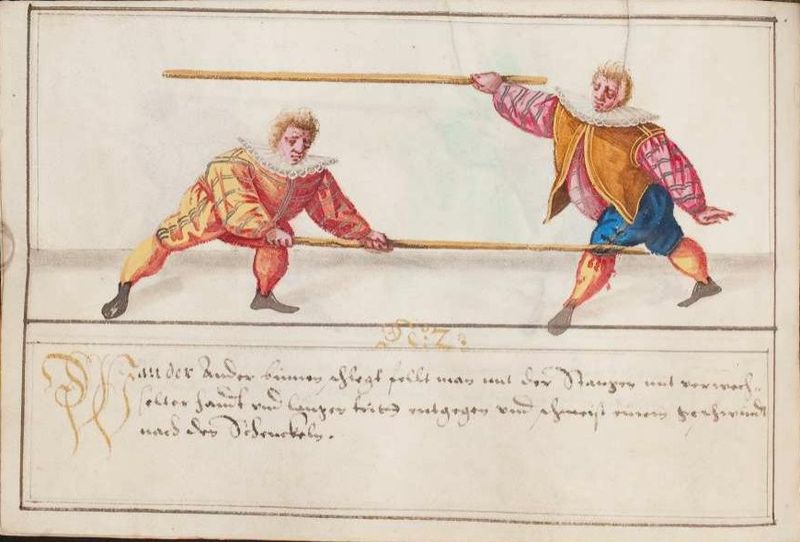 N: 2.
Wan der Ander binnen schlegt fellt man mit der Stangen mit verwech-
selter handt und langen tritt entgegen und schmeist einem geschwindt
nach den Schenckeln.